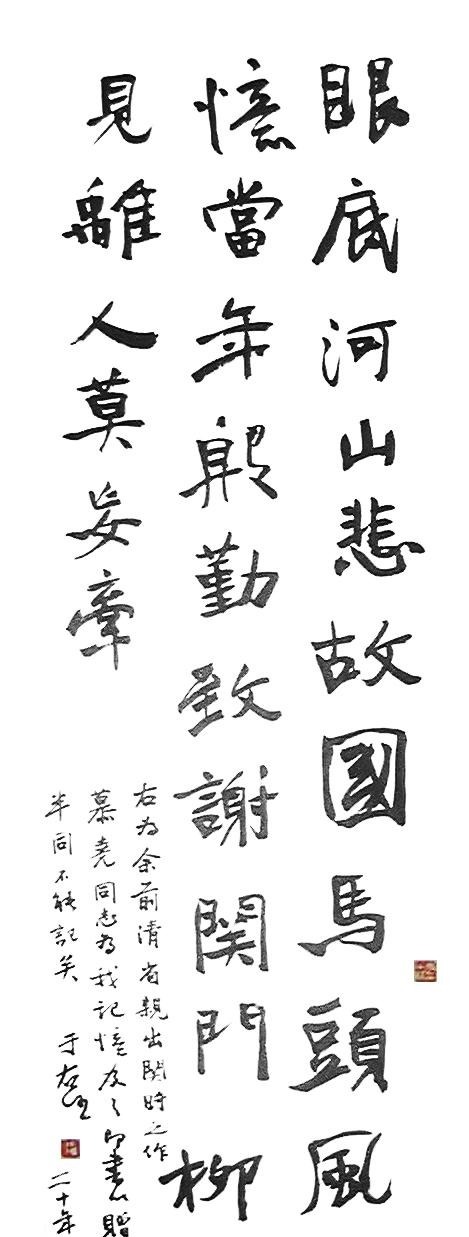 眼底河山悲故國馬頭風
憶當年殷勤致謝關門柳
見離人莫妄牽
右為余前清省親出關時之作
慕堯同志為我記憶及之即書以贈
不能記矣 于右任 二十年